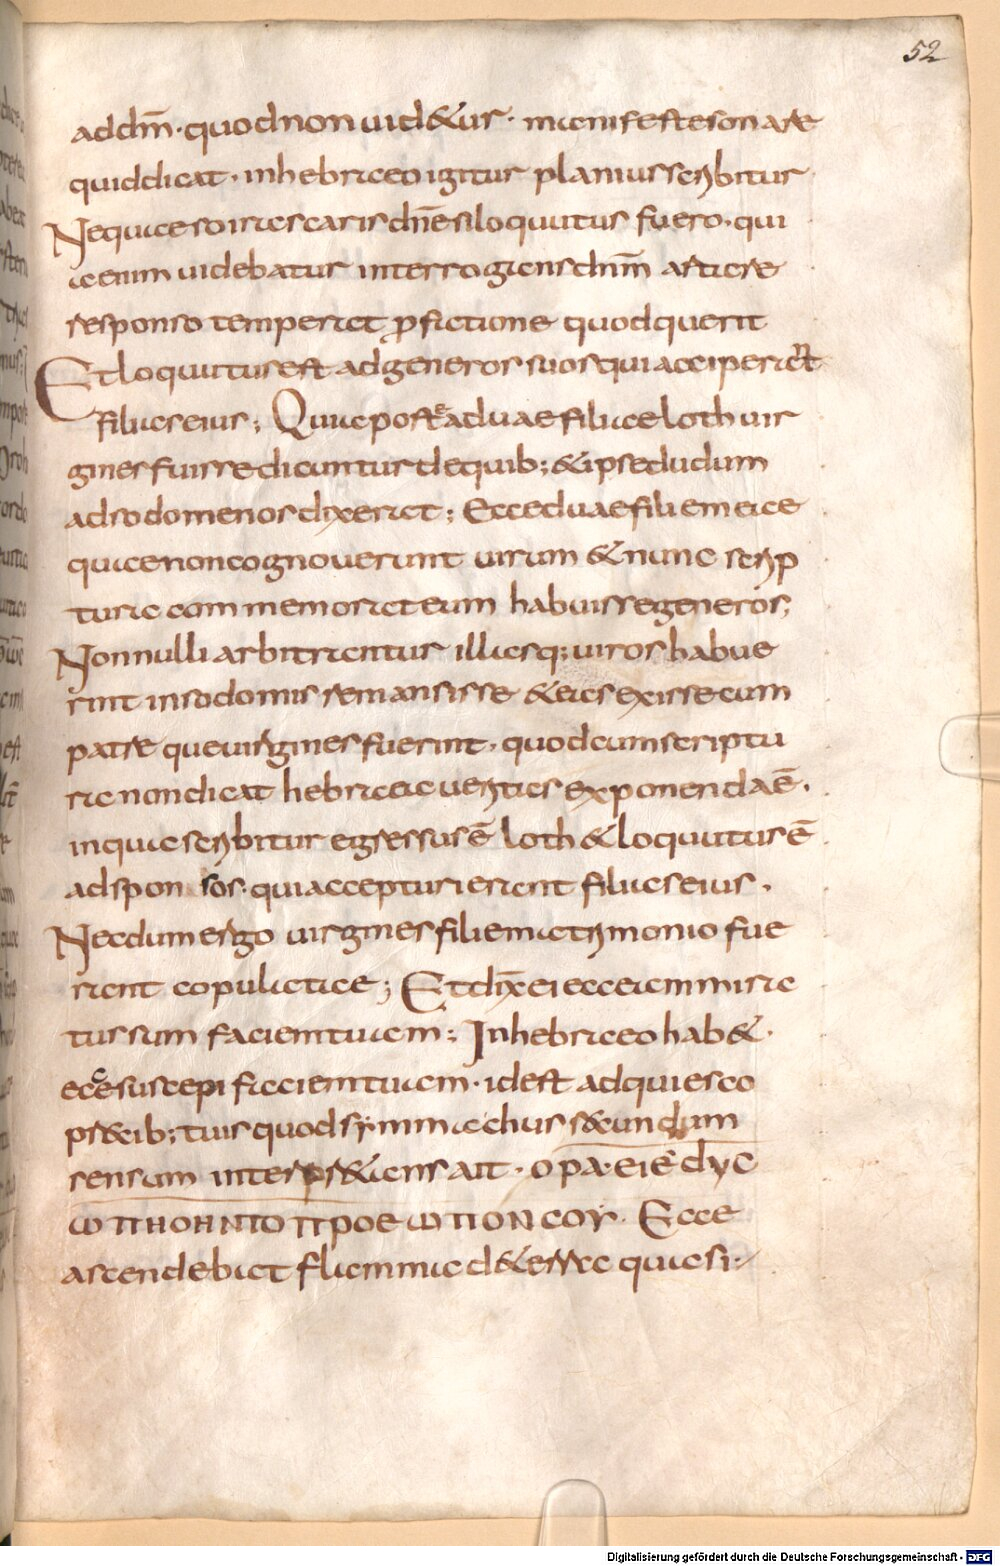 52
addm̄· quod non uid&ur· manifeste sonare
quid dicat· in hebraeo igitur planius scribitur
Nequaeso irascaris dn̄e si loquutus fuero· qui
a enim uidebatur interrogans dn̄m artare
responso temperat p̱fatione quod querit
Et loquutus est ad generos suos qui acciper̄t
filias eius; Quia postea duae filiae loth uir
gines fuisse dicuntur de quib; & ipse dudum
ad sodomenos dixerat; Ecce duae filiemeae
quae non cognouerunt uirum & nunc scrip
tura commemorat eum habuisse generos;
Nonnulli arbitrantur illas q; uiros habue
rint in sodomis remansisse & eas exisse cum
patre que uirgines fuerint· quod cum scriptu
ra non dicat hebraea ueritas exponenda ē·
in qua scribitur egressus ē loth & loquutus ē
ad sponsos· qui accepturi erant filias eius·
Necdum ergo uirgines filie matrimonio fue
rant copulatae; Et dix̄ ei ecce ammira
tus sum faciem tuam; In hebraeo hab&·
ecce suscepi faciem tuam· id est adquiesco
p̱cib; tuis quod symmachus s&cundum
sensum interpr&ans ait· οραϲει εδυϲ
ωπηθηντοπροϲωπονϲου· Ecce
ascendebat flamma de terra quasi·
Digitalisierung gefördert durch die Deutsche Forschungsgemeinschaft - DFG